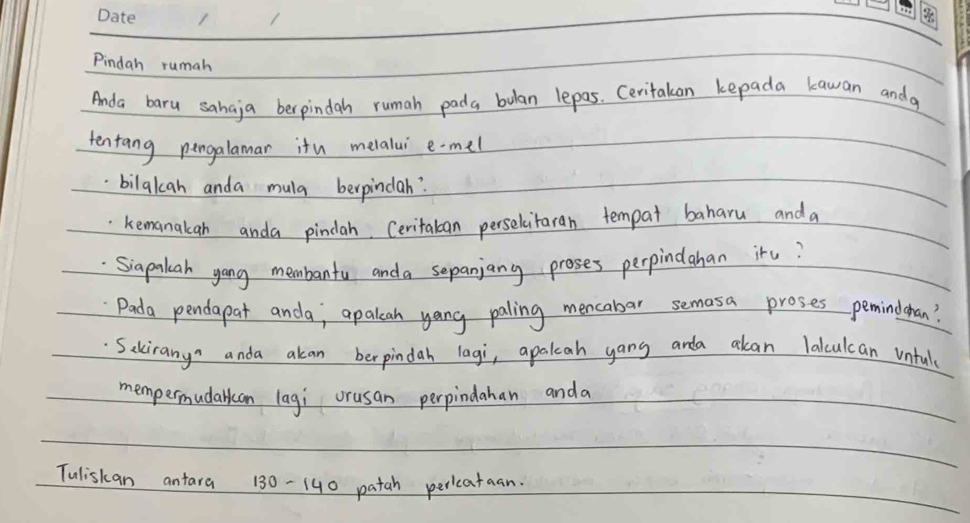 Date / /
Pindah rumah
Anda baru sahaja berpindah rumah pada bulan lepas. Ceritakan kepada kawan anda
tentang pengalaman itu melalui e-mel
· bilakah anda mula berpindah?
· kemanakah anda pindah. Ceritakan persekitaran tempat baharu anda
· Siapakah yang membantu anda sepanjang proses perpindahan itu?
· Pada pendapat anda, apakah yang paling mencabar semasa proses pemindahan?
· Sekiranya anda akan berpindah lagi, apakah yang anda akan lakukan untuk
mempermudahkan lagi urusan perpindahan anda
Tuliskan antara 130-140 patah perkataan.